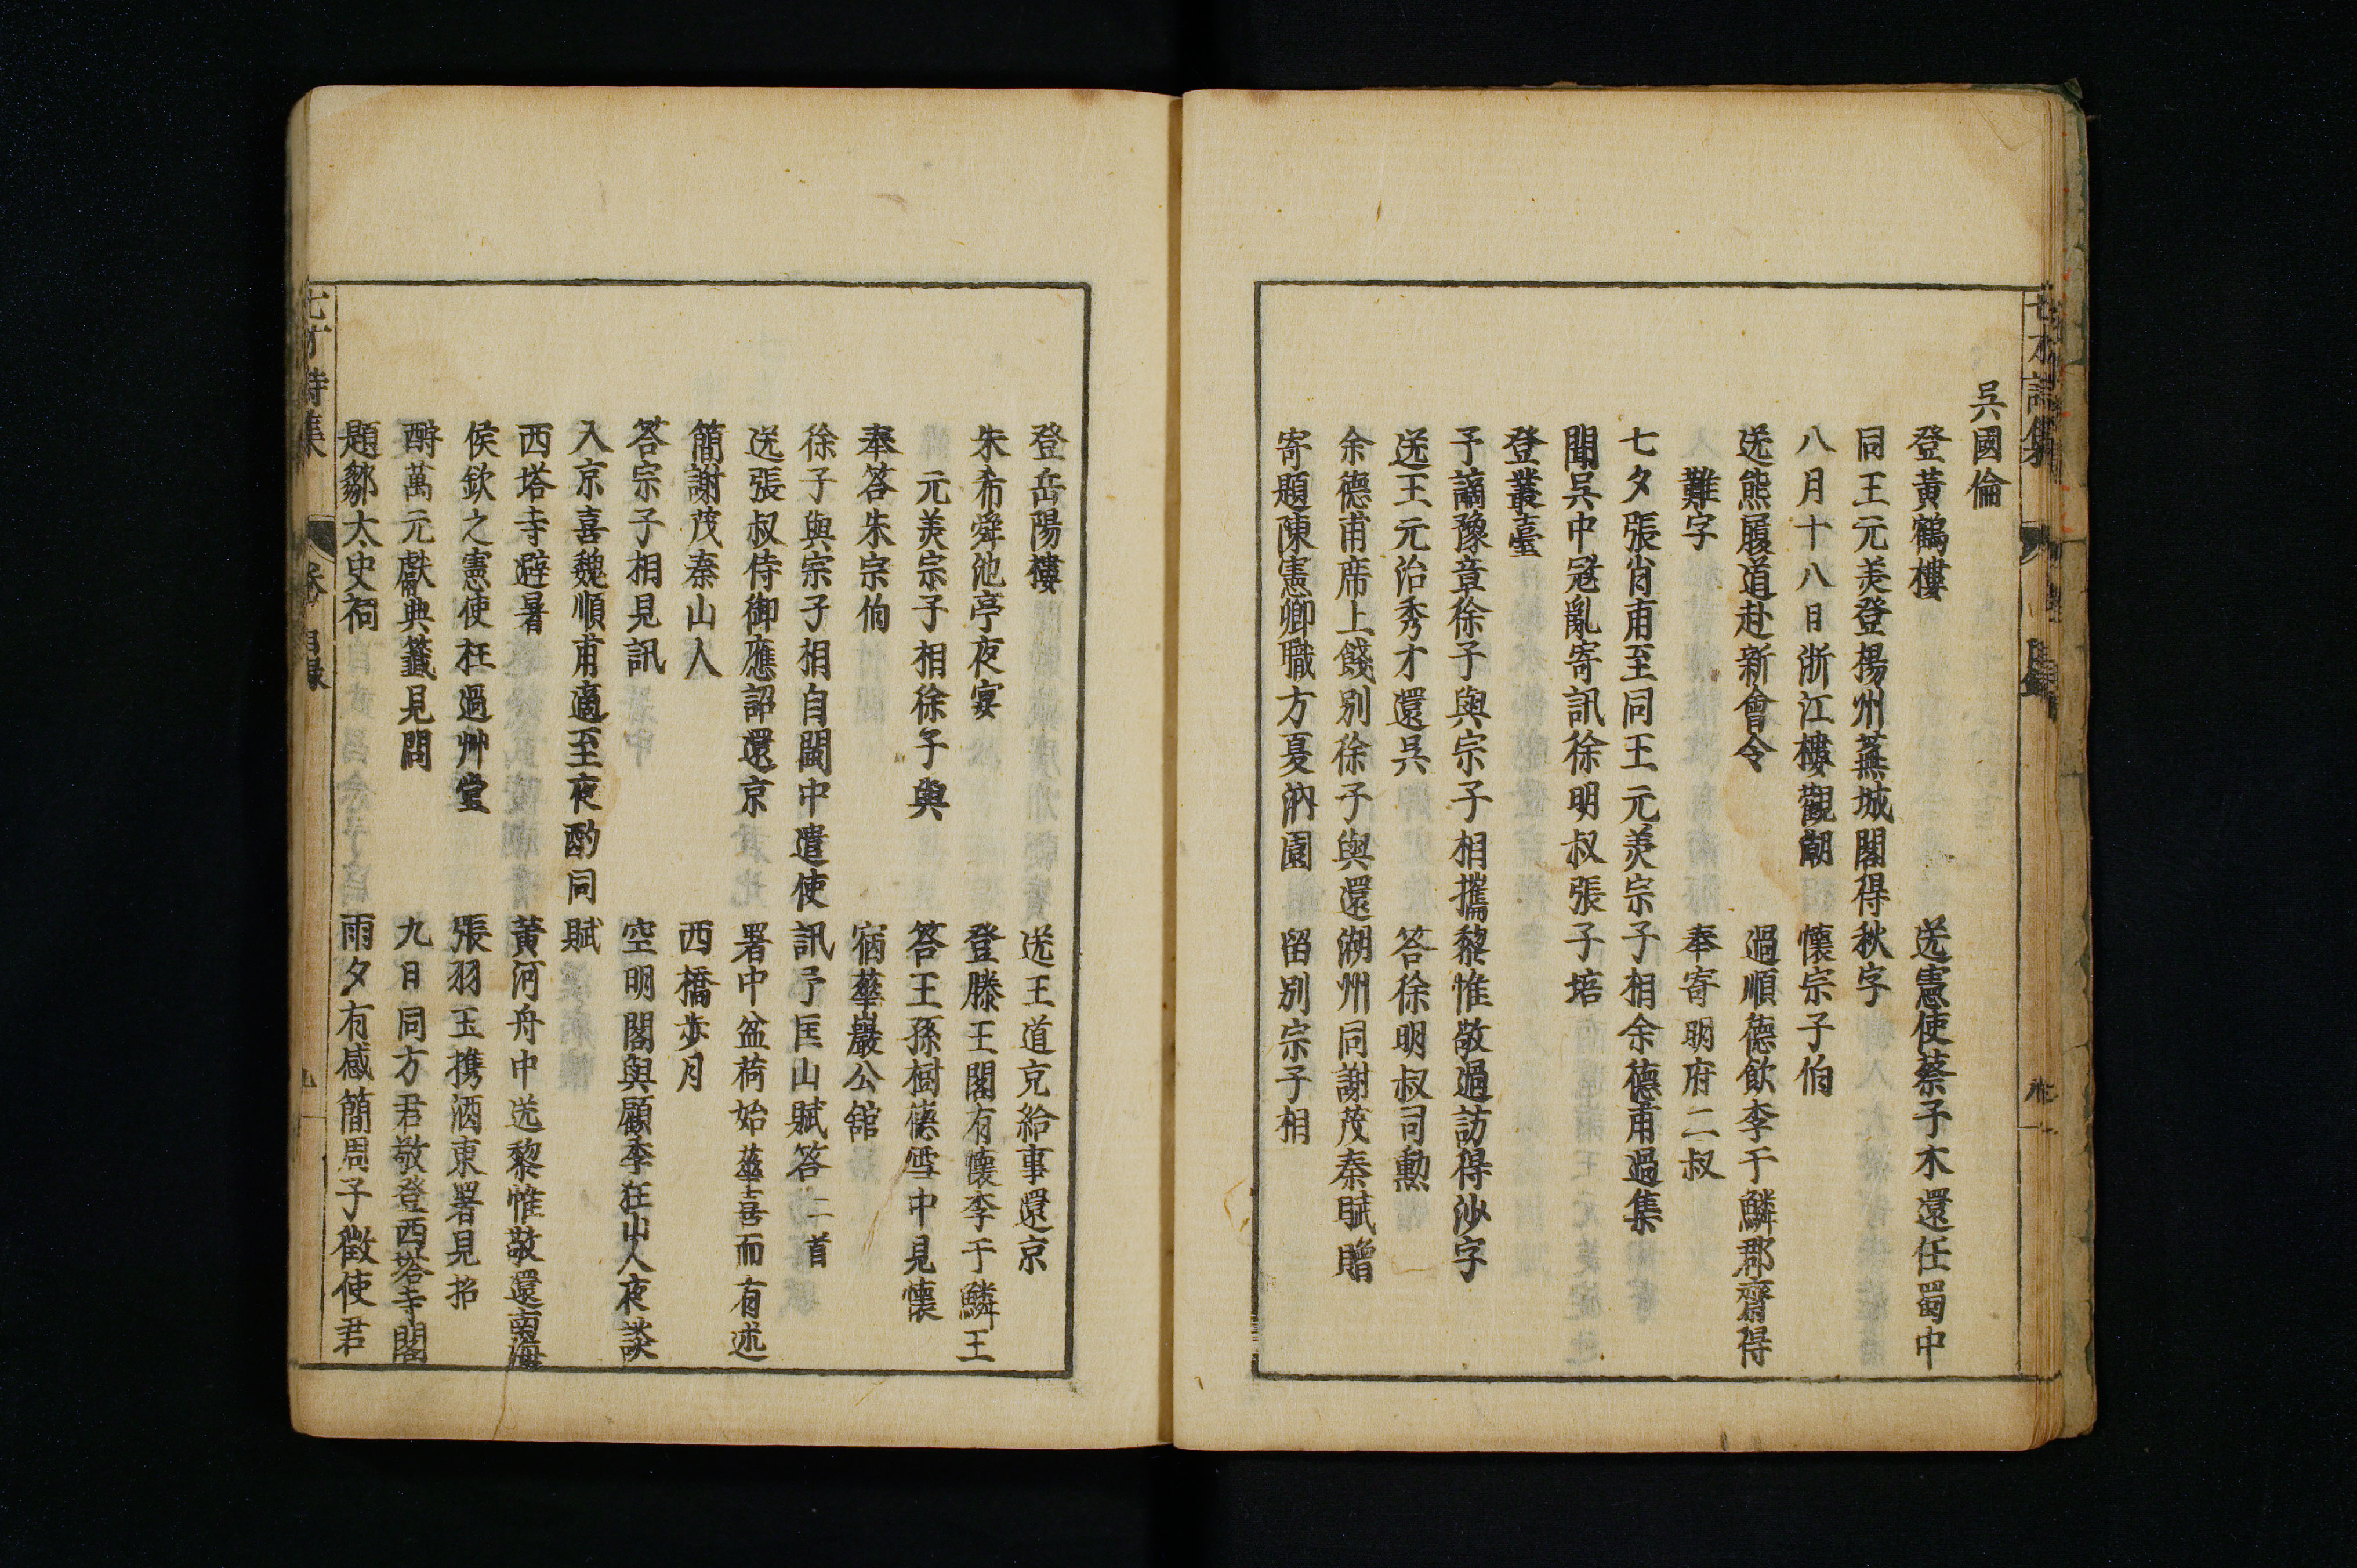 吳國倫
登黃鶴樓　送憲使蔡子木還任蜀中
同王元美登揚州蕪城閣得秋字
八月十八日浙江樓觀潮　懷宗子伯
送熊履道赴新會令　過順德飲李于鱗郡齋得
難字　奉寄明府二叔
七夕張肖甫至同王元美宗子相余德甫過集
聞吳中寇亂寄訊徐明叔張子培
登叢臺
予謫豫章徐子與宗子相攜黎惟敬過訪得沙字
送王元治秀才還吳　答徐明叔司勳
余德甫席上餞別徐子與還湖州同謝茂秦賦贈
寄題陳憲卿職方夏汭園　留別宗子相
登岳陽樓　送王道克給事還京
朱希舜池亭夜宴　登滕王閣有懷李于鱗王
元美宗子相徐子與　答王孫樹德雪中見懷
奉答朱宗伯　宿華巖公舘
徐子與宗子相自閩中遣使訊予匡山賦答二首
送張叔侍御應詔還京　署中盆荷始華喜而有述
簡謝茂秦山人　西橋步月
答宗子相見訊　空明閣與顧季狂山人夜談
入京喜魏順甫適至夜酌同賦
西塔寺避暑　黃河舟中送黎惟敬還南海
侯欽之憲使枉過艸堂　張羽王携酒東署見招
酧萬元獻典籤見問　九日同方君敬登西塔寺閣
題鄒太史祠　雨夕有感簡周子徵使君
七才詩集　卷　目錄